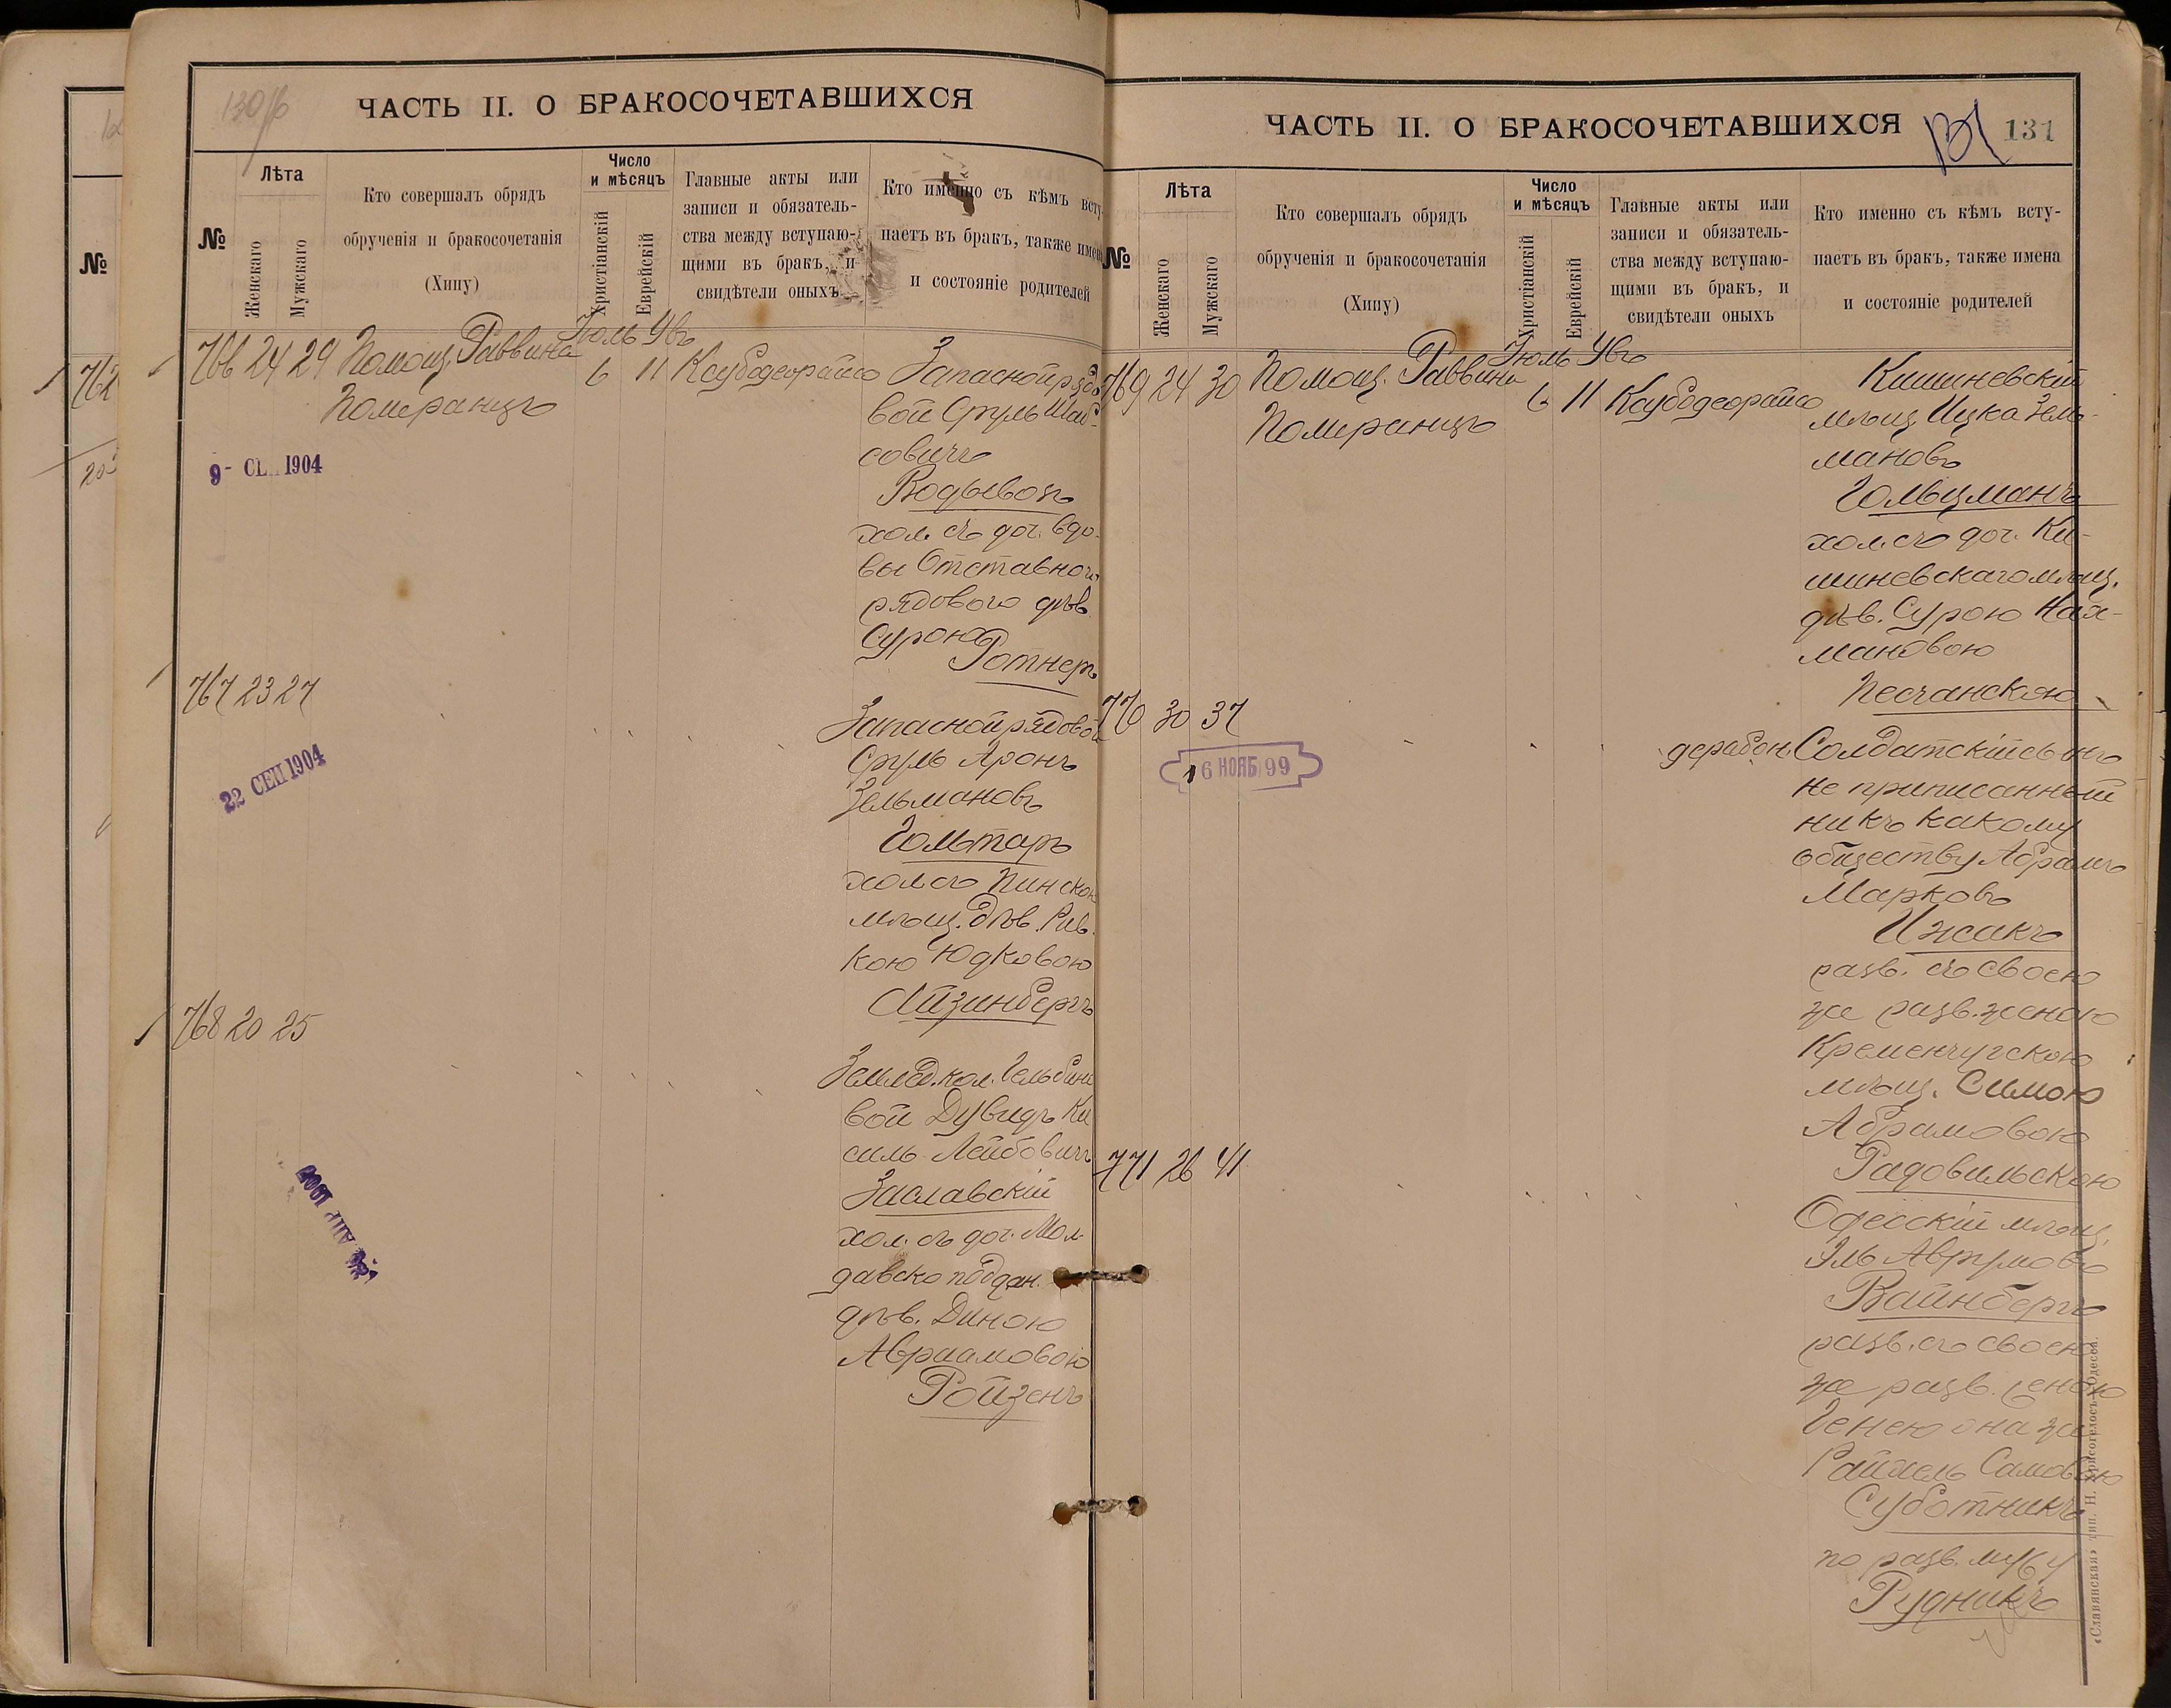 130/б
ЧАСТЬ II. О БРАКОСОЧЕТАВШИХСЯ
№
Лѣта
Женскаго
Мужскаго
Кто совершалъ обрядъ
обрученія и бракосочетанія
(Хипу)
Число
и мѣсяцъ
Христіанскій
Еврейскій
Главные акты или
записи и обязатель-
ства между вступаю-
щими въ бракъ, и
свидѣтели оныхъ
Кто именно съ кѣмъ всту-
паетъ въ бракъ, также имена
и состояніе родителей
766 24 29 Помощ. Раввина
Померанцъ
Іюль
6 11
9- СЕ 1904
Запасной рядо
вой Сруль Шаб-
совичъ
Водывозъ
хол. съ доч. вдо-
вы Отставного
рядового дѣв.
Сурою
Ротнеръ
767 23 27
22 СЕН 1904
Запасной рядовой
Сруль Аронъ
Зельмановъ
Гольтаръ
хол. съ Пинскою
мѣщ. дѣв. Рив-
кою Юдковою
Айзинбергъ
768 20 25
Землед. кол.
вой Дувидъ Ки
силь Лейбовичъ
Заславскій
хол. съ доч. Мол
давско поддан.
дѣв. Диною
Авраамовою
Ройзенъ
№
762
ЧАСТЬ II. О БРАКОСОЧЕТАВШИХСЯ
131
№
Лѣта
Женскаго
Мужскаго
Кто совершалъ обрядъ
обрученія и бракосочетанія
(Хипу)
Число
и мѣсяцъ
Христіанскій
Еврейскій
Главные акты или
записи и обязатель-
ства между вступаю-
щими въ бракъ, и
свидѣтели оныхъ
Кто именно съ кѣмъ всту-
паетъ въ бракъ, также имена
и состояніе родителей
769 24 30 Помощ. Раввина
Померанцъ
Іюль
6 11
Кишиневскій
мѣщ. Ицка Зель-
мановъ
Гольцманъ
хол. съ доч. Ки-
шиневскаго мѣщ.
дѣв. Сурою Нах-
мановою
Песчанскою
770 30 37
16 НОЯБ 99
Солдатскій сынъ
не приписанный
ни къ какому
обществу Абрамъ
Марковъ
Ицикъ
разв. съ своею
же разв. женою
Кременчугскою
мѣщ. Симою
Абрамовою
Радовильскою
771 26 41
Одесскій мѣщ.
Эль Аврумовъ
Вайнбергъ
разв. съ своею
же разв. женою
Генею она же
Райхель
Суботникъ
по разв. мужу
Рудникъ
«Славянская» тип. Н. Хрисогелосъ, Одесса.